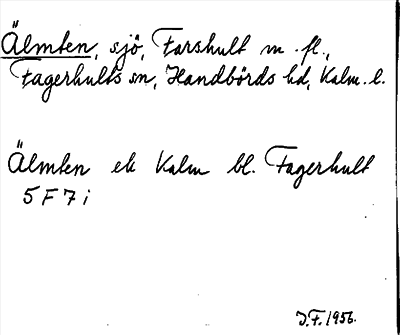 Älmten, sjö, Farshult m. fl.,
Fagerhults sn, Handbörds hd, Kalm. l.
Älmten ek Kalm bl. Fagerhult
5 F 7 i
J.F. 1956.